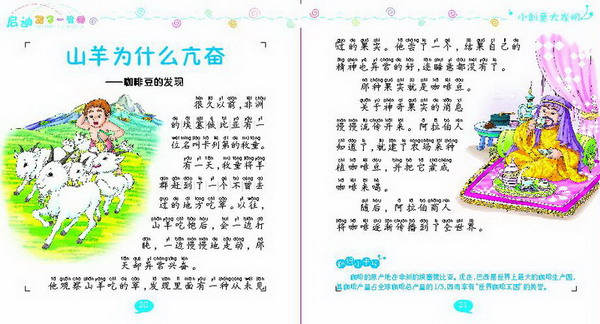 小创意大发明
山羊为什么亢奋
——咖啡豆的发现
很久以前，非洲
的埃塞俄比亚有一
位名叫卡列第的牧童。
有一天，牧童将羊
群赶到了一个不曾去
过的地方吃草。以往，
山羊吃饱后，会一边打
盹，一边慢慢地走动，那
天却异常兴奋。
他观察山羊吃的草，发现里面有一种从未见
20
过的果实。他尝了一个，结果自己的
精神也异常的好，连睡意都没有了。
那种果实就是咖啡豆。
关于神奇果实的消息
慢慢流传开来。阿拉伯人
知道了，就建了农场来种
植咖啡豆，并把它煮成
咖啡来喝。
随后，阿拉伯商人
将咖啡逐渐传播到了全世界。
咖啡的原产地在非洲的埃塞俄比亚。现在，巴西是世界上最大的咖啡生产国，
其咖啡产量占全球咖啡总产量的1/3，因而享有“世界咖啡王国”的美誉。
21